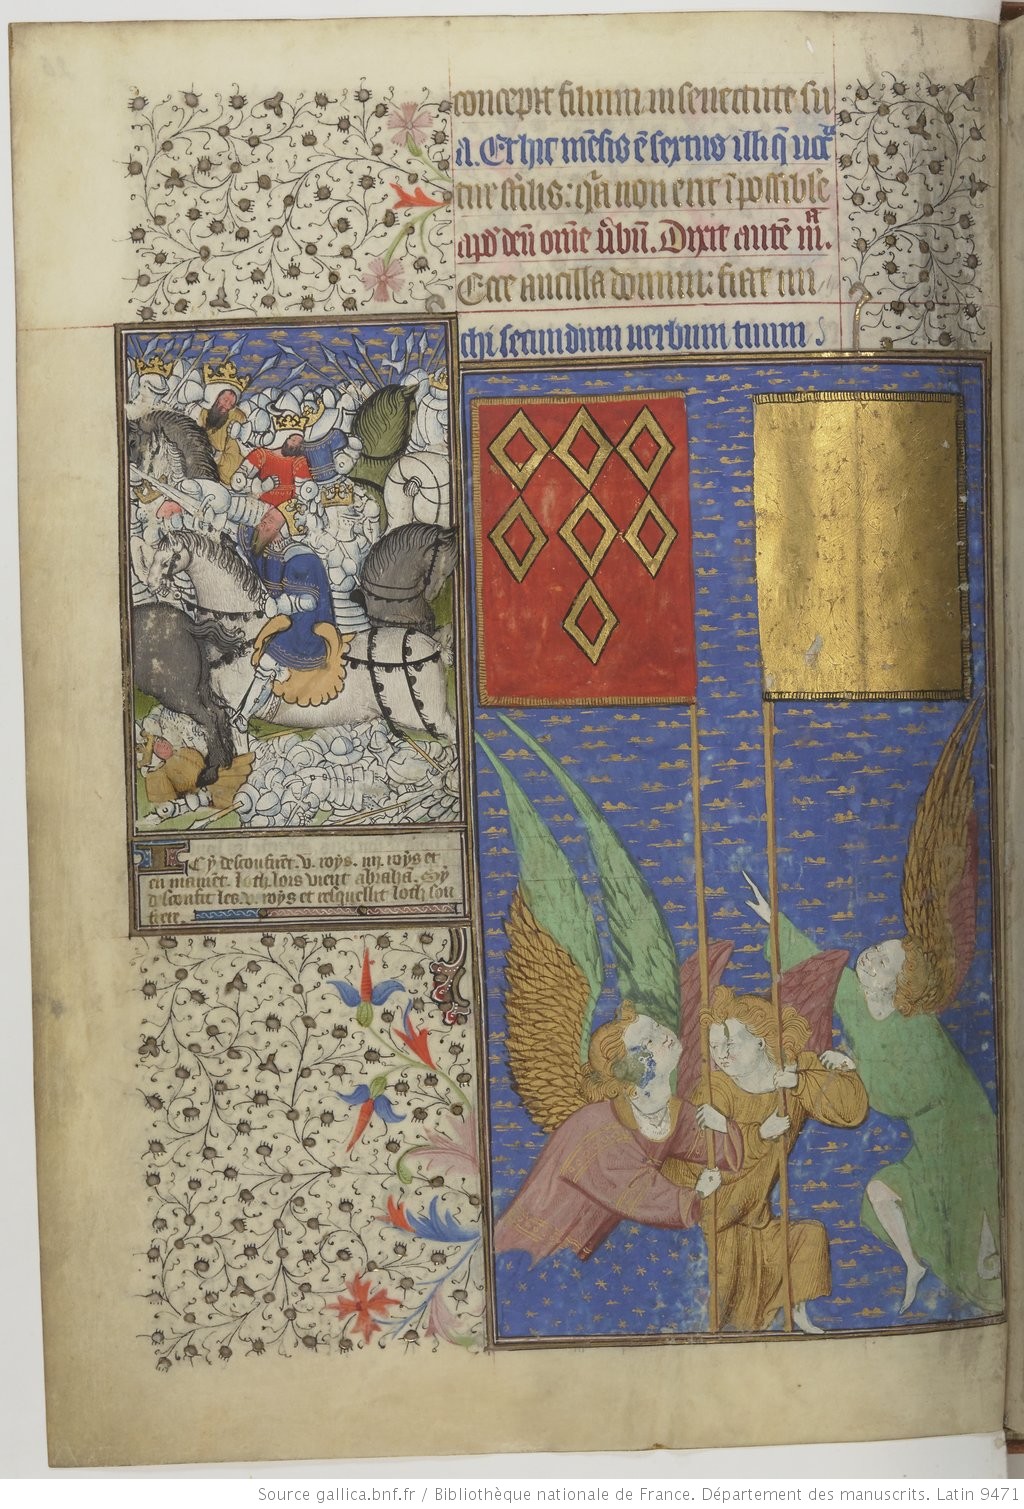 concepit filium in senectute su
a. Et hic mēsis ē sextus illi q̄ uocat
tur st̄ilis: qīa non erit īpossibile
apd̕ deū om̄e ūbū. Dixit autē ma.
Ecce ancilla domini: fiat mi
chi secundum uerbum tuum
Cy desconfirēt .v. roys. iiii. roys et
en maīnēt. loth. lors vient abrahā. Sy
descōfit les .v. roys et resqueust loth son
frere.
Source gallica.bnf.fr / Bibliothèque nationale de France. Département des manuscrits. Latin 9471